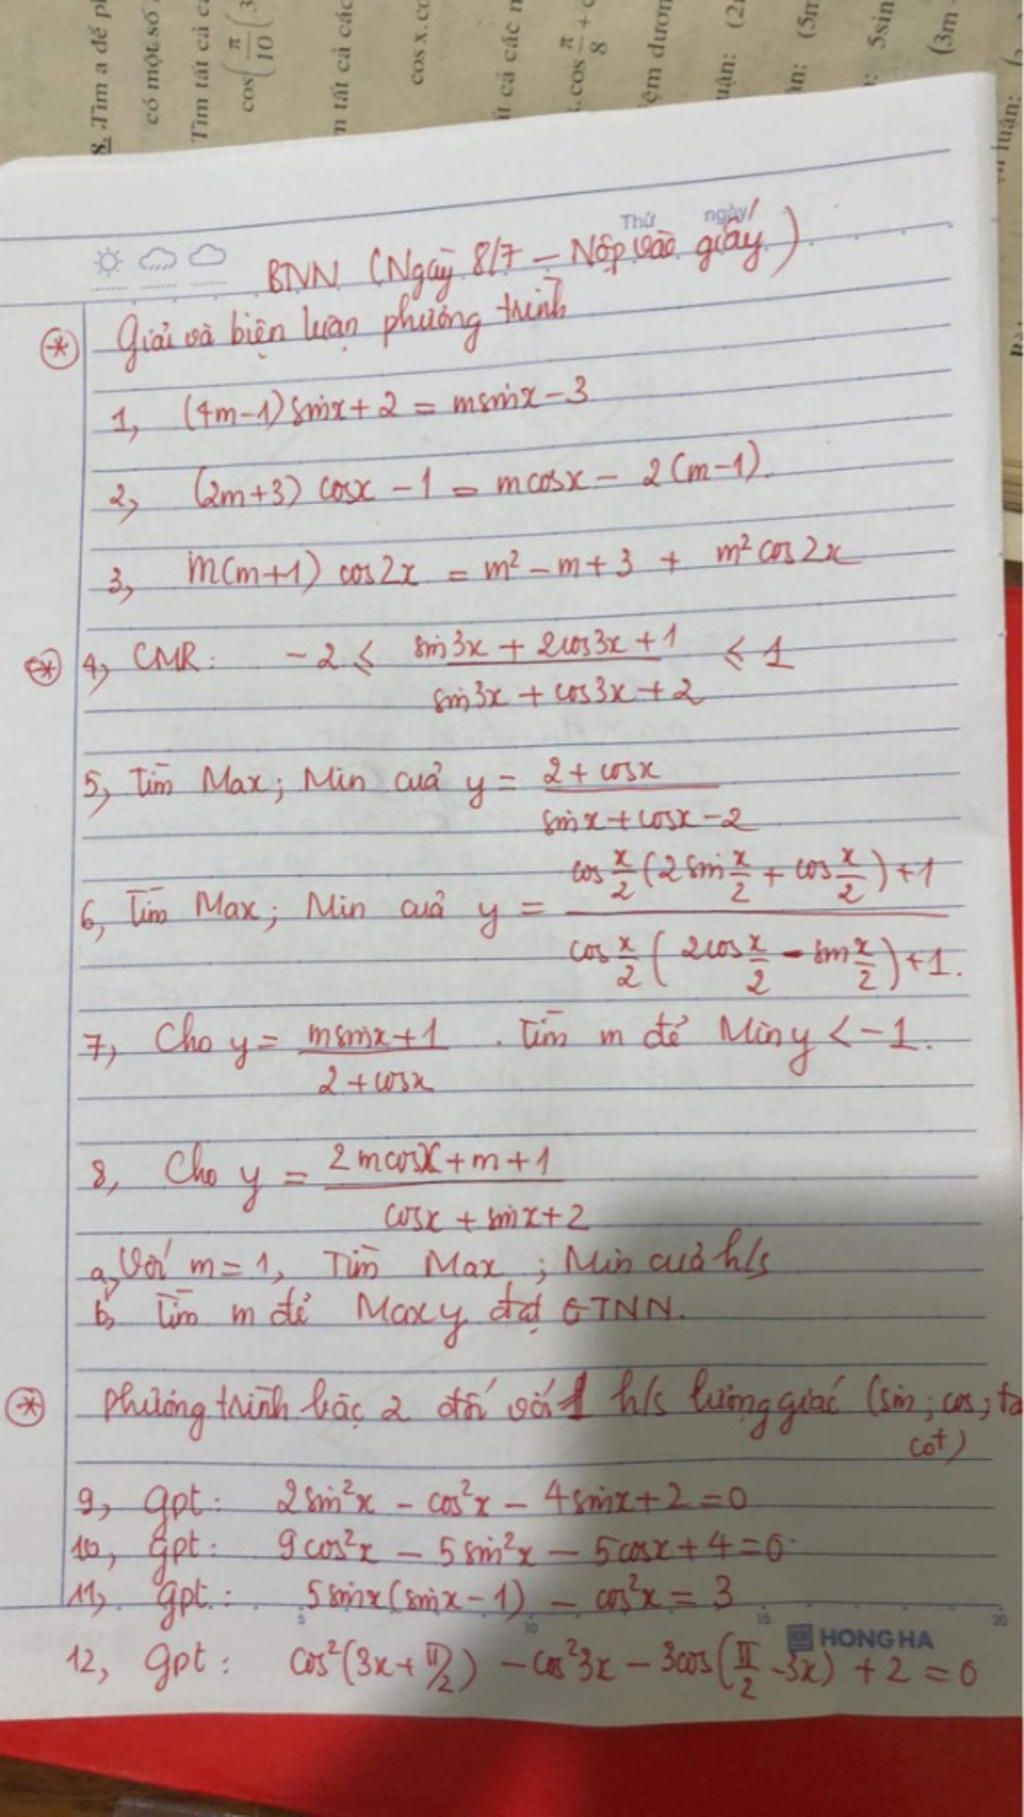 8. Tìm a để
có một số
Tìm tất cả
cos(π/10 (3
tất cả các
cos x.co
cả các
cos π/8 +
(5m
5sin
(3m
Thứ ngày
BTNN (Ngày 8/7 – Nộp vào giấy)
Giải và biện luận phương trình
1, (4m-1) sinx + 2 = msinx - 3
2, (2m+3) cosx - 1 = mcosx - 2(m-1).
3, m(m+1) cos2x = m² - m + 3 + m² cos2x
4, CMR: -2 ≤ (sin3x + 2cos3x + 1)/(sin3x + cos3x + 2) ≤ 1
5, Tìm Max; Min của y = (2 + cosx)/(sinx + cosx - 2)
6, Tìm Max; Min của y = (cos x/2 (2sin x/2 + cos x/2) + 1)/(cos x/2 (2cos x/2 - sin x/2) + 1).
7, Cho y = (msinx + 1)/(2 + cosx) . Tìm m để Min y < -1.
8, Cho y = (2mcosx + m + 1)/(cosx + sinx + 2)
a, Với m = 1, Tìm Max ; Min của h/s
b, Tìm m để Maxy đạt GTNN.
Phương trình bậc 2 đối với 1 h/s lượng giác (sin ; cos ; ta
cot)
9, gpt: 2sin²x - cos²x - 4sinx + 2 = 0
10, gpt: 9cos²x - 5sin²x - 5cosx + 4 = 0
11, gpt: 5sinx(sinx - 1) - cos²x = 3
5 10 15 20
HONG HA
12, gpt: cos²(3x + π/2) - cos²3x - 3cos(π/2 - 3x) + 2 = 0